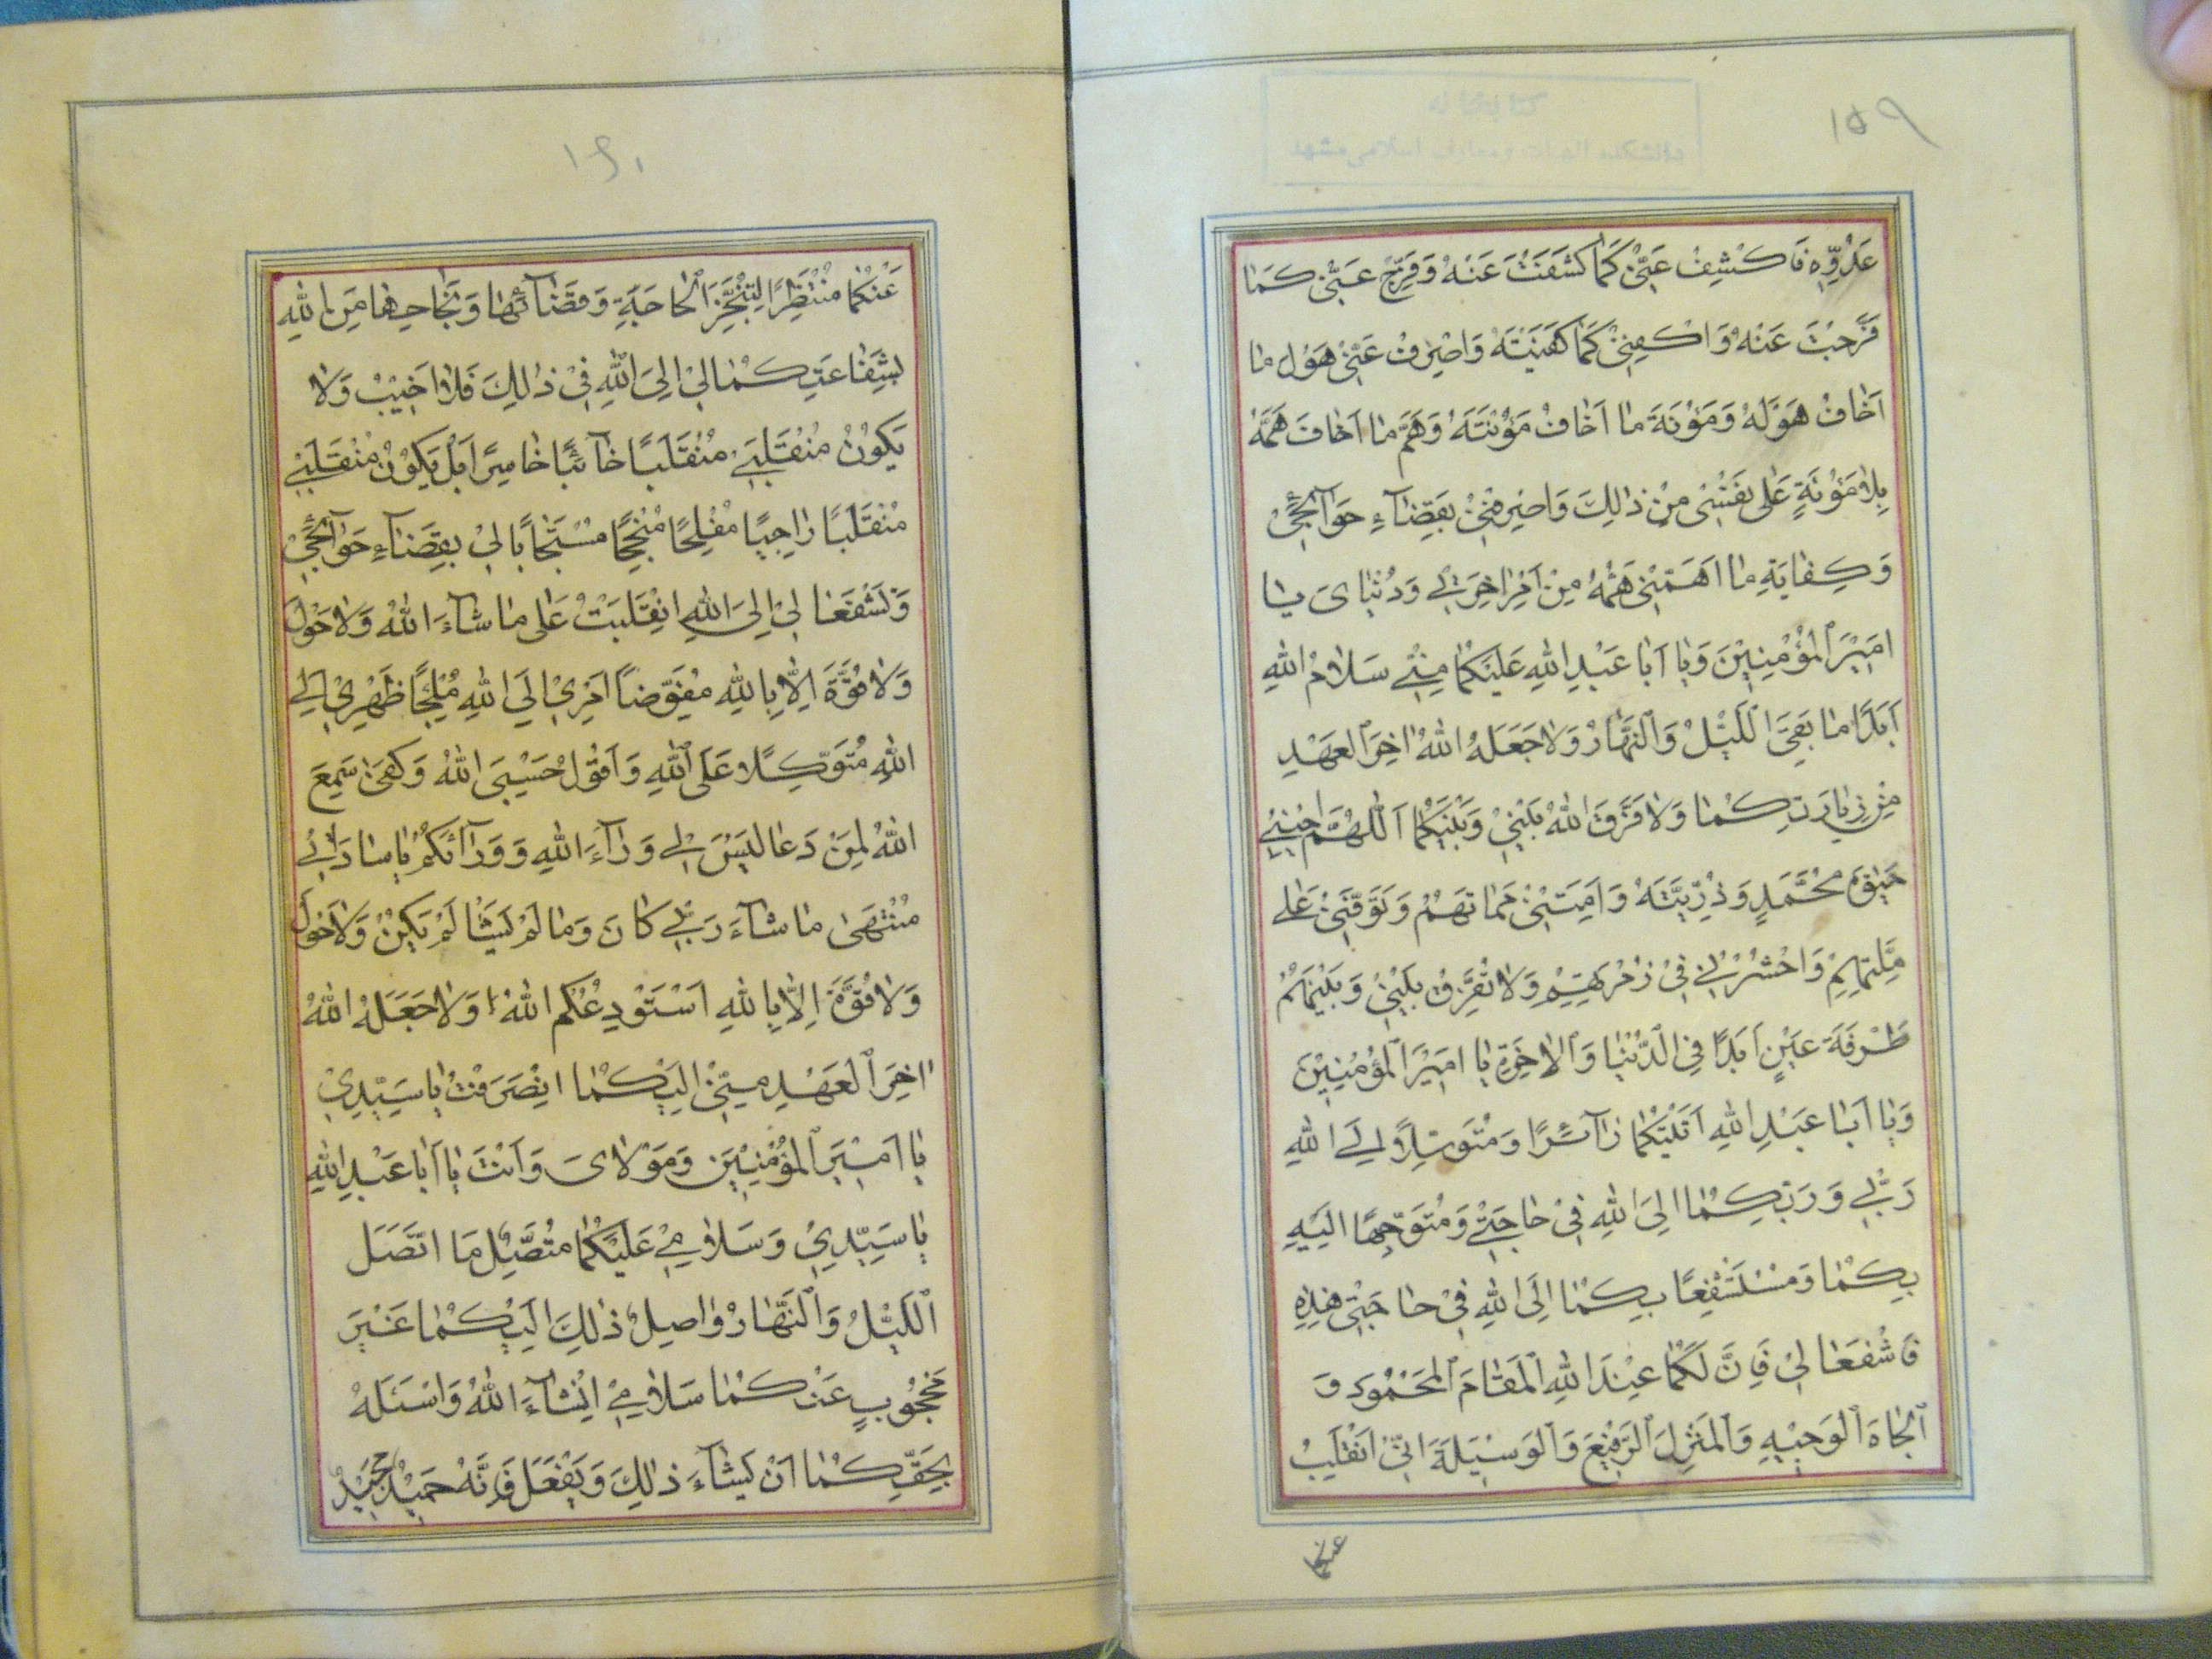 ١٥٩
عَدُوِّهِ فَاكْشِفْ عَنّی كَمٰا كَشَفْتَ عَنْهُ وَفَرِّجْ عَنّی كَمٰا
فَرَّجْتَ عَنْهُ وَاكْفِنی كَمٰا كَفَيْتَهُ وَاصْرِفْ عَنّی هَوْلَ مٰا
اَخٰافُ هَوْلَهُ وَمَؤُنَةَ مٰا اَخٰافُ مَؤُنَتَهُ وَهَمَّ مٰا اَخٰافُ هَمَّهُ
بِلٰا مَؤُنَةٍ عَلٰی نَفْسی مِنْ ذٰلِكَ وَاصْرِفْنی بِقَضٰآءِ حَوٰآئِجی
وَكِفٰايَةِ مٰا اَهَمَّنی هَمُّهُ مِنْ اَمْرِ اٰخِرَتی وَدُنْيٰایَ يٰا
اَميرَ الْمُؤْمِنينَ وَيٰا اَبٰا عَبْدِ اللّٰهِ عَلَيْكُمٰا مِنّی سَلٰامُ اللّٰهِ
اَبَدًا مٰا بَقِیَ اللَّيْلُ وَالنَّهٰارُ وَلٰا جَعَلَهُ اللّٰهُ اٰخِرَ الْعَهْدِ
مِنْ زِيٰارَتِكُمٰا وَلٰا فَرَّقَ اللّٰهُ بَيْنی وَبَيْنَكُمٰا اَللّٰهُمَّ اَحْيِنی
حَيٰوةَ مُحَمَّدٍ وَذُرِّيَّتِهِ وَاَمِتْنی مَمٰاتَهُمْ وَتَوَفَّنی عَلٰی
مِلَّتِهِمْ وَاحْشُرْنی فی زُمْرَتِهِمْ وَلٰا تُفَرِّقْ بَيْنی وَبَيْنَهُمْ
طَرْفَةَ عَيْنٍ اَبَدًا فِی الدُّنْيٰا وَالْاٰخِرَةِ يٰا اَميرَ الْمُؤْمِنينَ
وَيٰا اَبٰا عَبْدِ اللّٰهِ اَتَيْتُكُمٰا زٰآئِرًا وَمُتَوَسِّلًا اِلَی اللّٰهِ
رَبّی وَرَبِّكُمٰا اِلَی اللّٰهِ فی حٰاجَتی وَمُتَوَجِّهًا اِلَيْهِ
بِكُمٰا وَمُسْتَشْفِعًا بِكُمٰا اِلَی اللّٰهِ فی حٰاجَتی هٰذِهِ
فَاشْفَعٰا لی فَاِنَّ لَكُمٰا عِنْدَ اللّٰهِ الْمَقٰامَ الْمَحْمُودَ وَ
الْجٰاهَ الْوَجيهِ وَالْمَنْزِلَ الرَّفيعَ وَالْوَسيلَةَ اِنّی اَنْقَلِبُ
عنكما
١٦٠
عَنْكُمٰا مُنْتَظِرًا لِتَنَجُّزِ الْحٰاجَةِ وَقَضٰآئِهٰا وَنَجٰاحِهٰا مِنَ اللّٰهِ
بِشَفٰاعَتِكُمٰا لی اِلَی اللّٰهِ فی ذٰلِكَ فَلٰا اَخيبُ وَلٰا
يَكُونُ مُنْقَلَبی مُنْقَلَبًا خٰآئِبًا خٰاسِرًا بَلْ يَكُونُ مُنْقَلَبی
مُنْقَلَبًا رٰاجِيًا مُفْلِحًا مُنْجِحًا مُسْتَجٰابًا لی بِقَضٰآءِ حَوٰآئِجی
وَتَشْفَعٰا لی اِلَی اللّٰهِ انْقَلَبْتُ عَلٰی مٰا شٰآءَ اللّٰهُ وَلٰا حَوْلَ
وَلٰا قُوَّةَ اِلّٰا بِاللّٰهِ مُفَوِّضًا اَمْری اِلَی اللّٰهِ مُلْجِئًا ظَهْری اِلَی
اللّٰهِ مُتَوَكِّلًا عَلَی اللّٰهِ وَاَقُولُ حَسْبِیَ اللّٰهُ وَكَفٰی سَمِعَ
اللّٰهُ لِمَنْ دَعٰا لَيْسَ لی وَرٰآءَ اللّٰهِ وَوَرٰآئَكُمْ يٰا سٰادَتی
مُنْتَهٰی مٰا شٰآءَ رَبّی كٰانَ وَمٰا لَمْ يَشَأْ لَمْ يَكُنْ وَلٰا حَوْلَ
وَلٰا قُوَّةَ اِلّٰا بِاللّٰهِ اَسْتَوْدِعُكُم اللّٰهُ وَلٰا جَعَلَهُ اللّٰهُ
اٰخِرَ الْعَهْدِ مِنّی اِلَيْكُمٰا انْصَرَفْتُ يٰا سَيِّدی
يٰا اَميرَ الْمُؤْمِنينَ وَمَوْلٰایَ وَاَنْتَ يٰا اَبٰا عَبْدِ اللّٰهِ
يٰا سَيِّدی وَسَلٰامی عَلَيْكُمٰا مُتَّصِلٌ مَا اتَّصَلَ
اللَّيْلُ وَالنَّهٰارُ وٰاصِلٌ ذٰلِكَ اِلَيْكُمٰا غَيْرَ
مَحْجُوبٍ عَنْكُمٰا سَلٰامی اِنْشٰآءَ اللّٰهُ وَاَسْئَلُهُ
بِحَقِّكُمٰا اَنْ يَشٰآءَ ذٰلِكَ وَيَفْعَلَ فَاِنَّهُ حَميدٌ مَجيدٌ